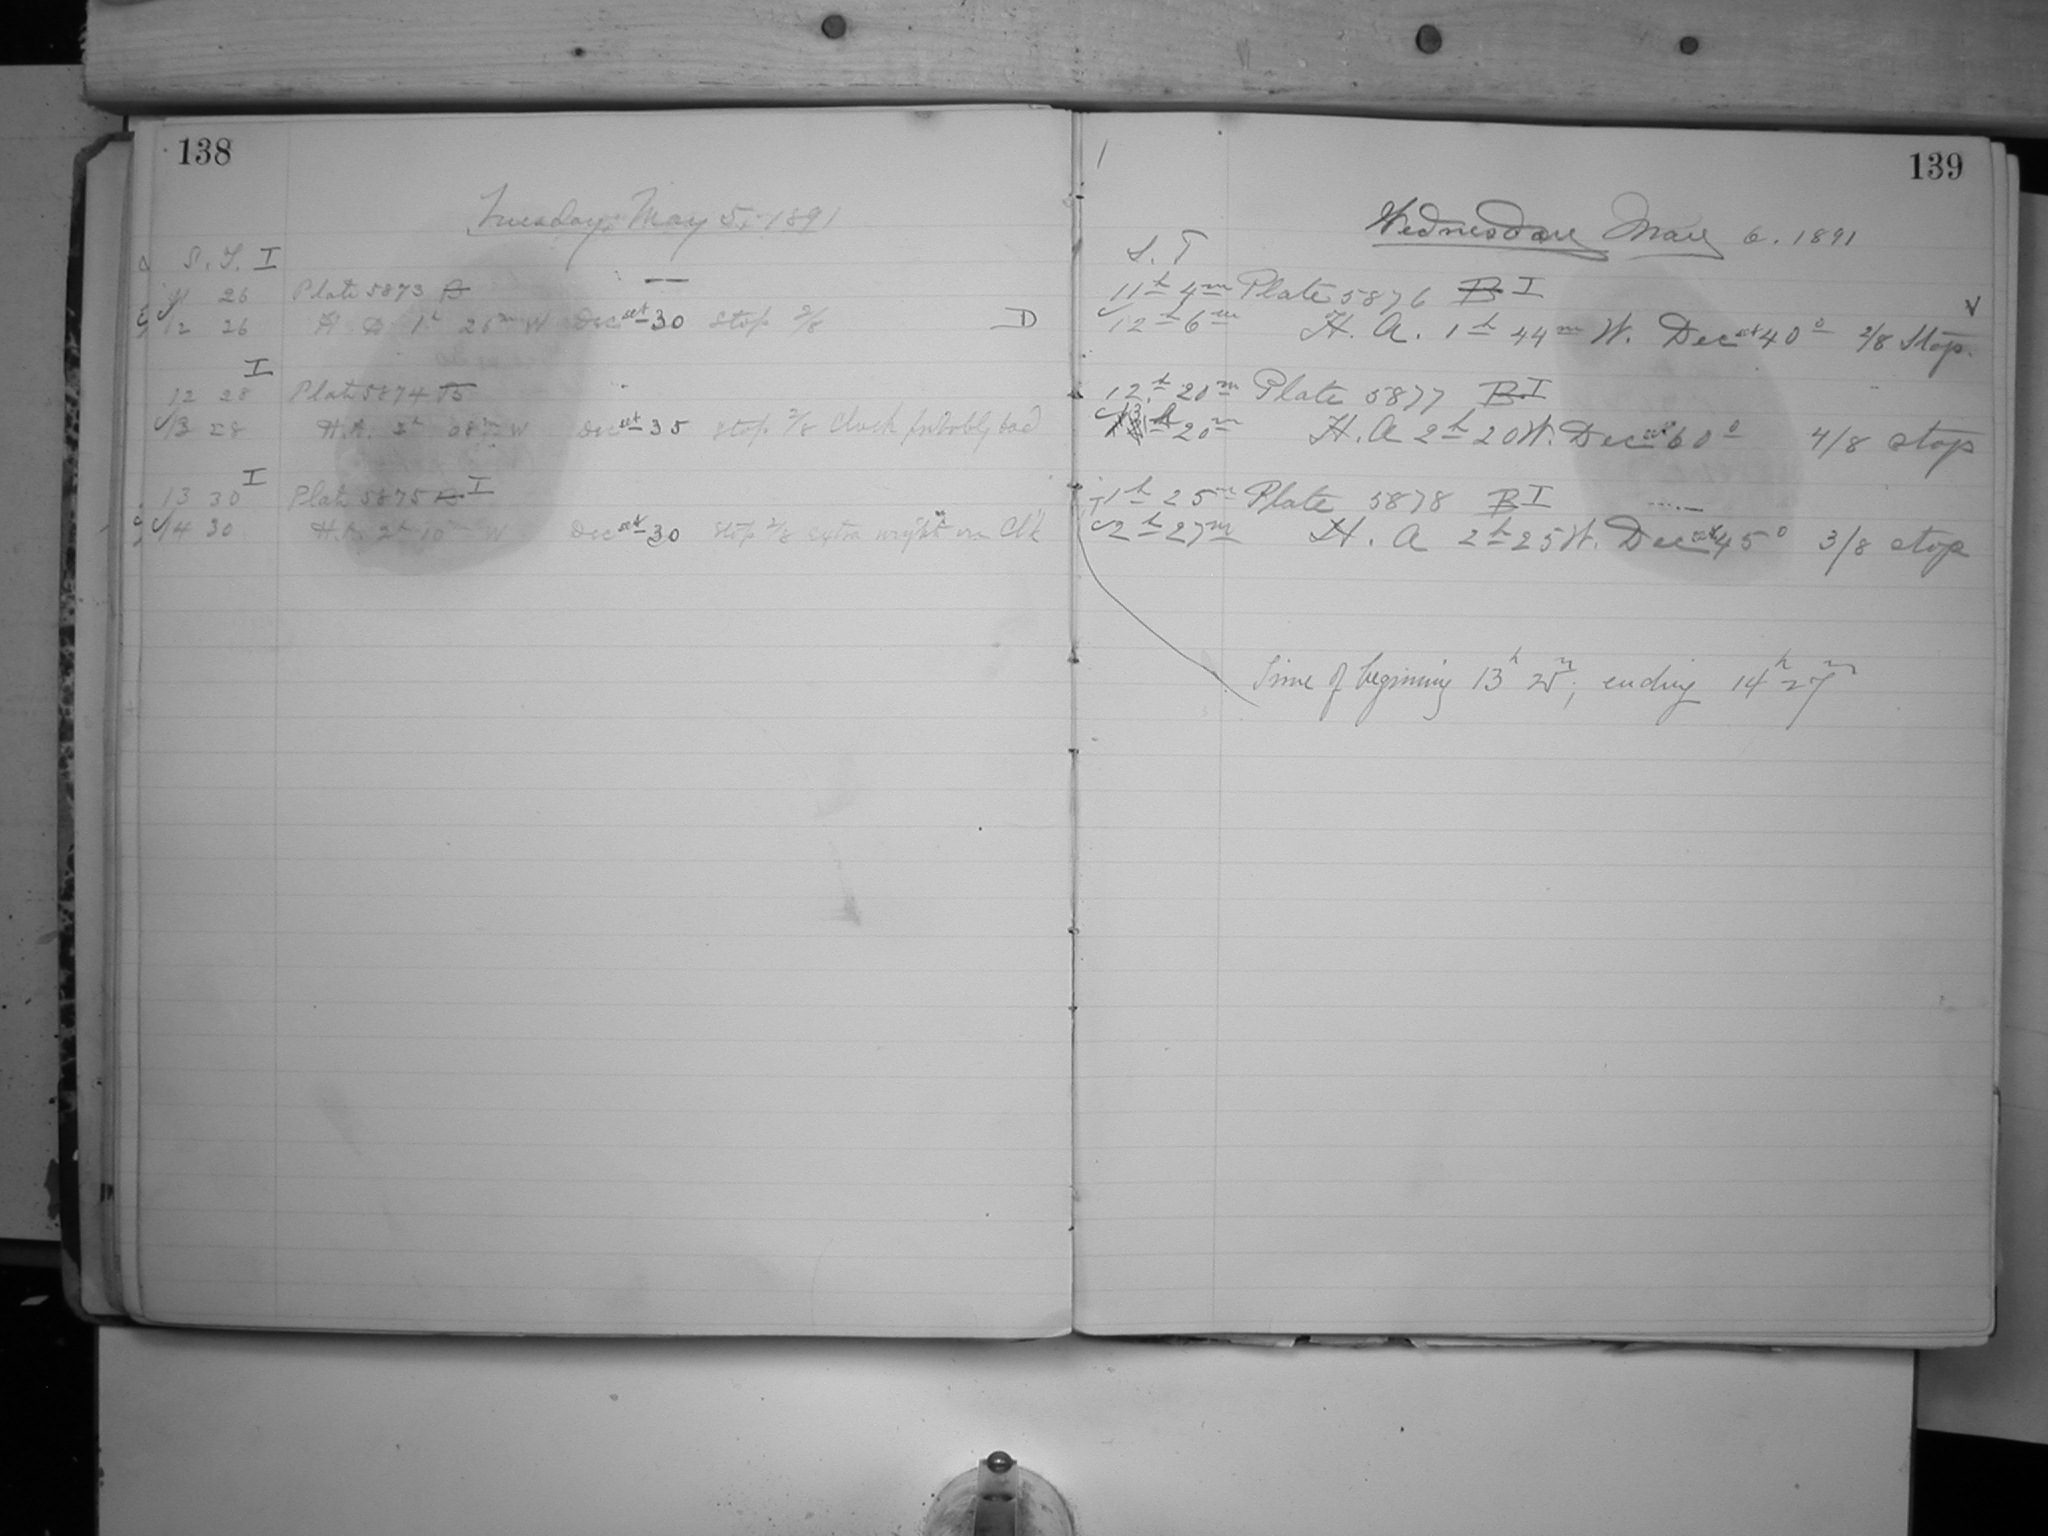 138
Tuesday, May 5, 1891
S. T. I
11 26 Plate 5873 B
12 26 H. A. 1h 26m W Dec set -30 Stop 2/8 D
I
12 28 Plate 5874 B
13 28 H.A. 2h 08m W Dec set -35 Stop 2/8 Clock probably bad
I
13 30 Plate 5875 B I
14 30 H.A. 2h 10m W Dec set -30 Stop 2/8 extra weight on Clk
139
Wednesday May 6. 1891
S. T
11h 4m Plate 5876 B I
12h 6m H. A. 1h 44m W. Dec set -40° 2/8 Stop.
12h 20m Plate 5877 B I
13h 20m H. A 2h 20 W. Dec set -60° 4/8 stop
1h 25m Plate 5878 B I
2h 27m H. A 2h 25 W. Dec set -45° 3/8 stop
Time of beginning 13h 25m; ending 14h 27m